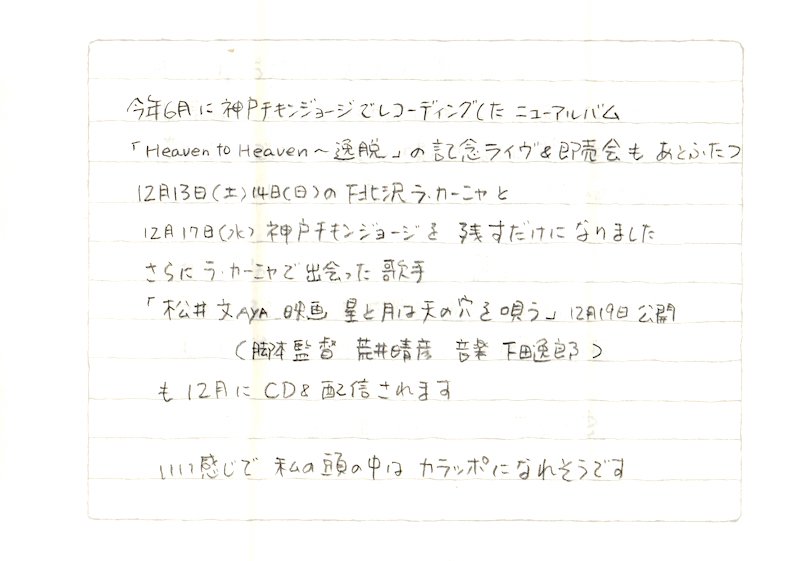 今年6月に神戸チキンジョージでレコーディングしたニューアルバム
「Heaven to Heaven〜逸脱」の記念ライヴ&即売会もあとふたつ
12月13日(土)14日(日)の下北沢ラ・カーニャと
12月17日(水)神戸チキンジョージを残すだけになりました
さらにラ・カーニャで出会った歌手
「松井文AYA 映画 星と月は天の穴を唄う」12月19日公開
(脚本監督 荒井晴彦 音楽 下田逸郎)
も12月にCD&配信されます
いい感じで 私の頭の中は カラッポになれそうです